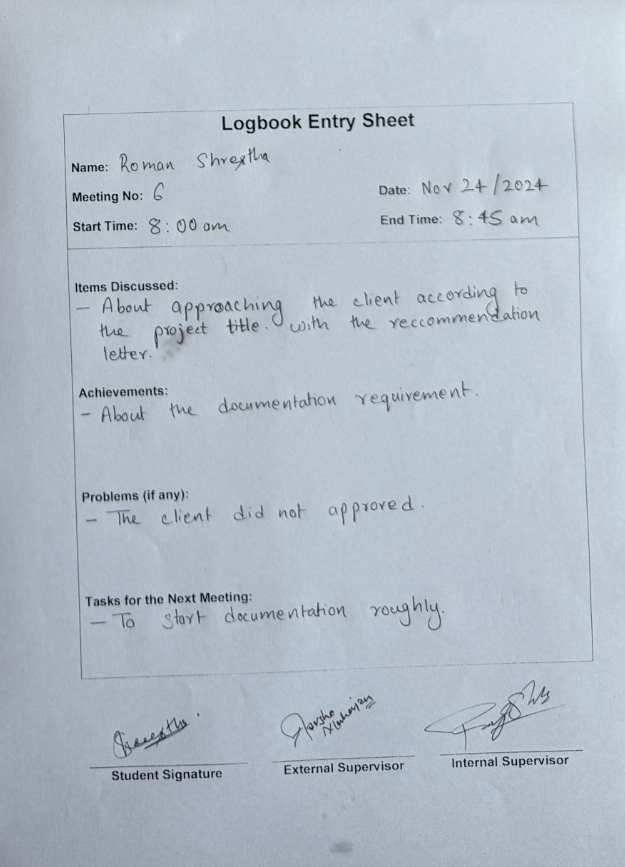 Logbook Entry Sheet
Name: Roman Shrestha
Meeting No: 6
Date: Nov 24/2024
Start Time: 8:00 am
End Time: 8:45 am
Items Discussed:
- About approaching the client according to
the project title. with the reccommendation
letter.
Achievements:
- About the documentation requirement.
Problems (if any):
- The client did not approved.
Tasks for the Next Meeting:
- To start documentation roughly.
Shrestha
Maharjan
Student Signature
External Supervisor
Internal Supervisor